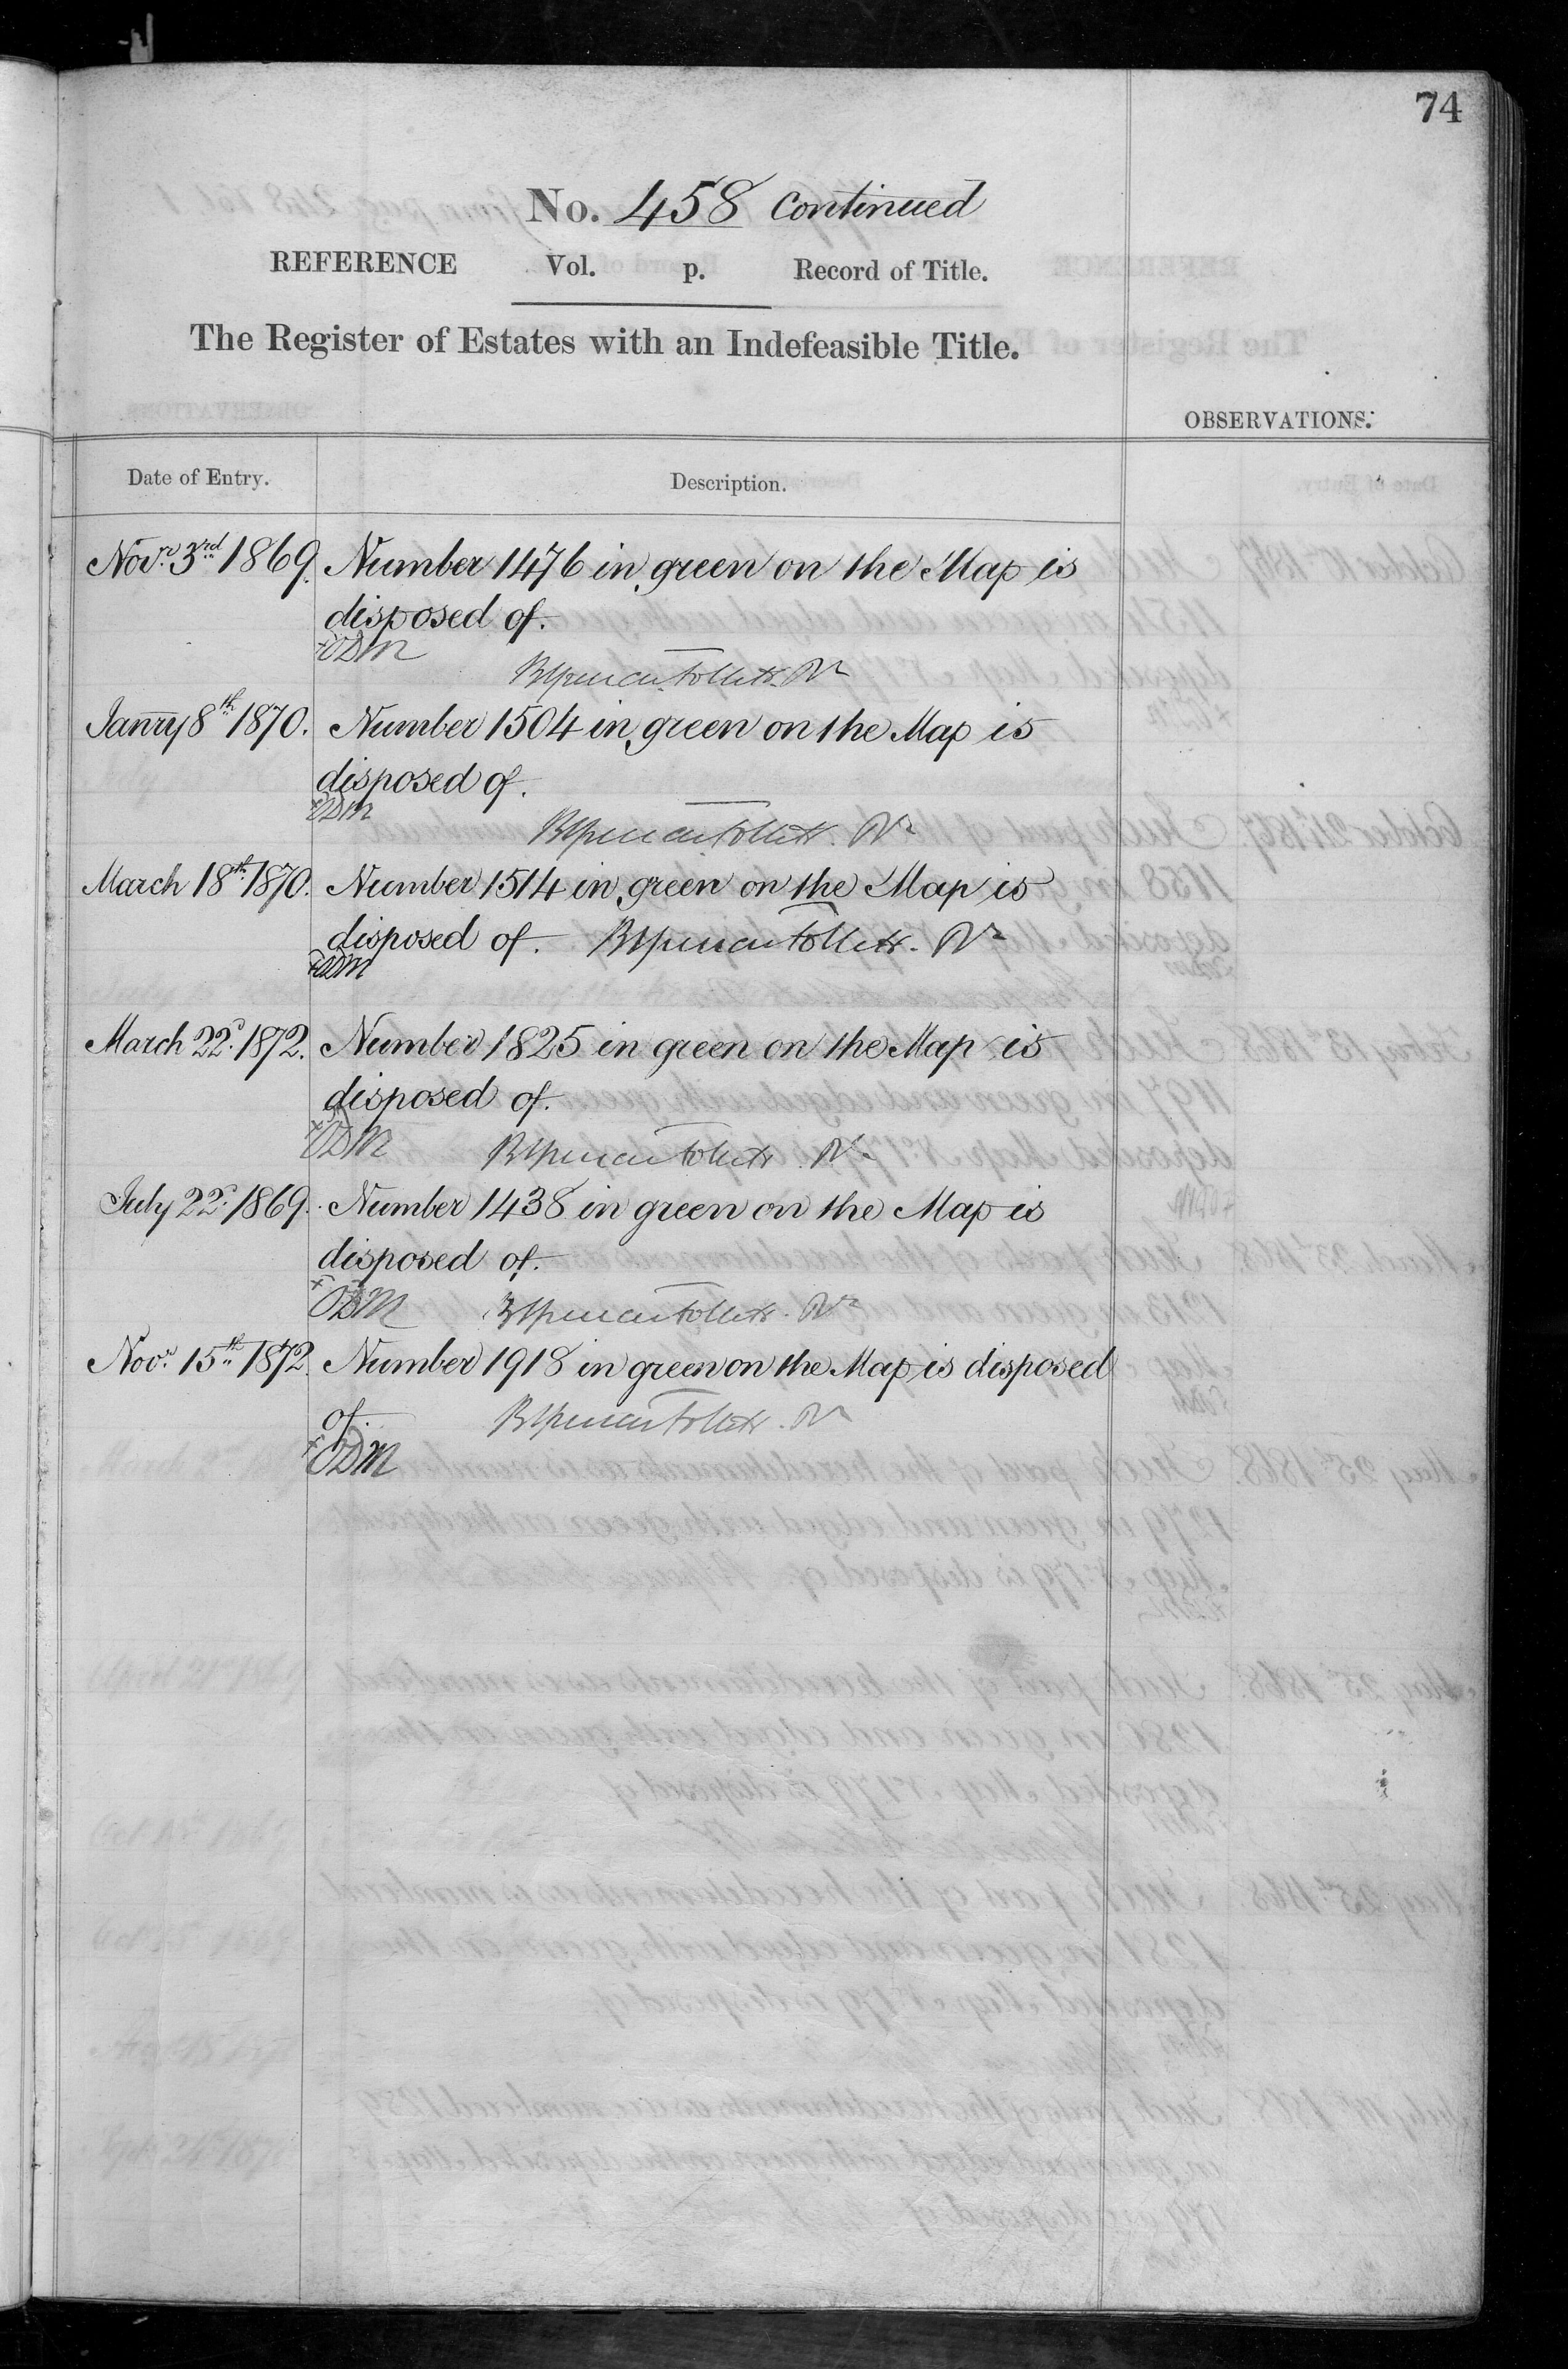 74
No. 458 continued
REFERENCE Vol. p. Record of Title.
The Register of Estates with an Indefeasible Title.
OBSERVATIONS.
Date of Entry. Description.
Novr. 3rd 1869. Number 1476 in green on the Map is
disposed of.
+ODM
Brent Spencer Follett. Rr
Janry 8th 1870. Number 1504 in green on the Map is
disposed of.
+ODM
Rr
March 18th 1870. Number 1514 in green on the Map is
disposed of. Rr
+ODM
March 22d. 1872. Number 1825 in green on the Map is
disposed of.
+ODM
July 22d. 1869. Number 1438 in green on the Map is
disposed of.
+ODM
Novr. 15th 1872. Number 1918 in green on the Map is disposed
of.
+ODM